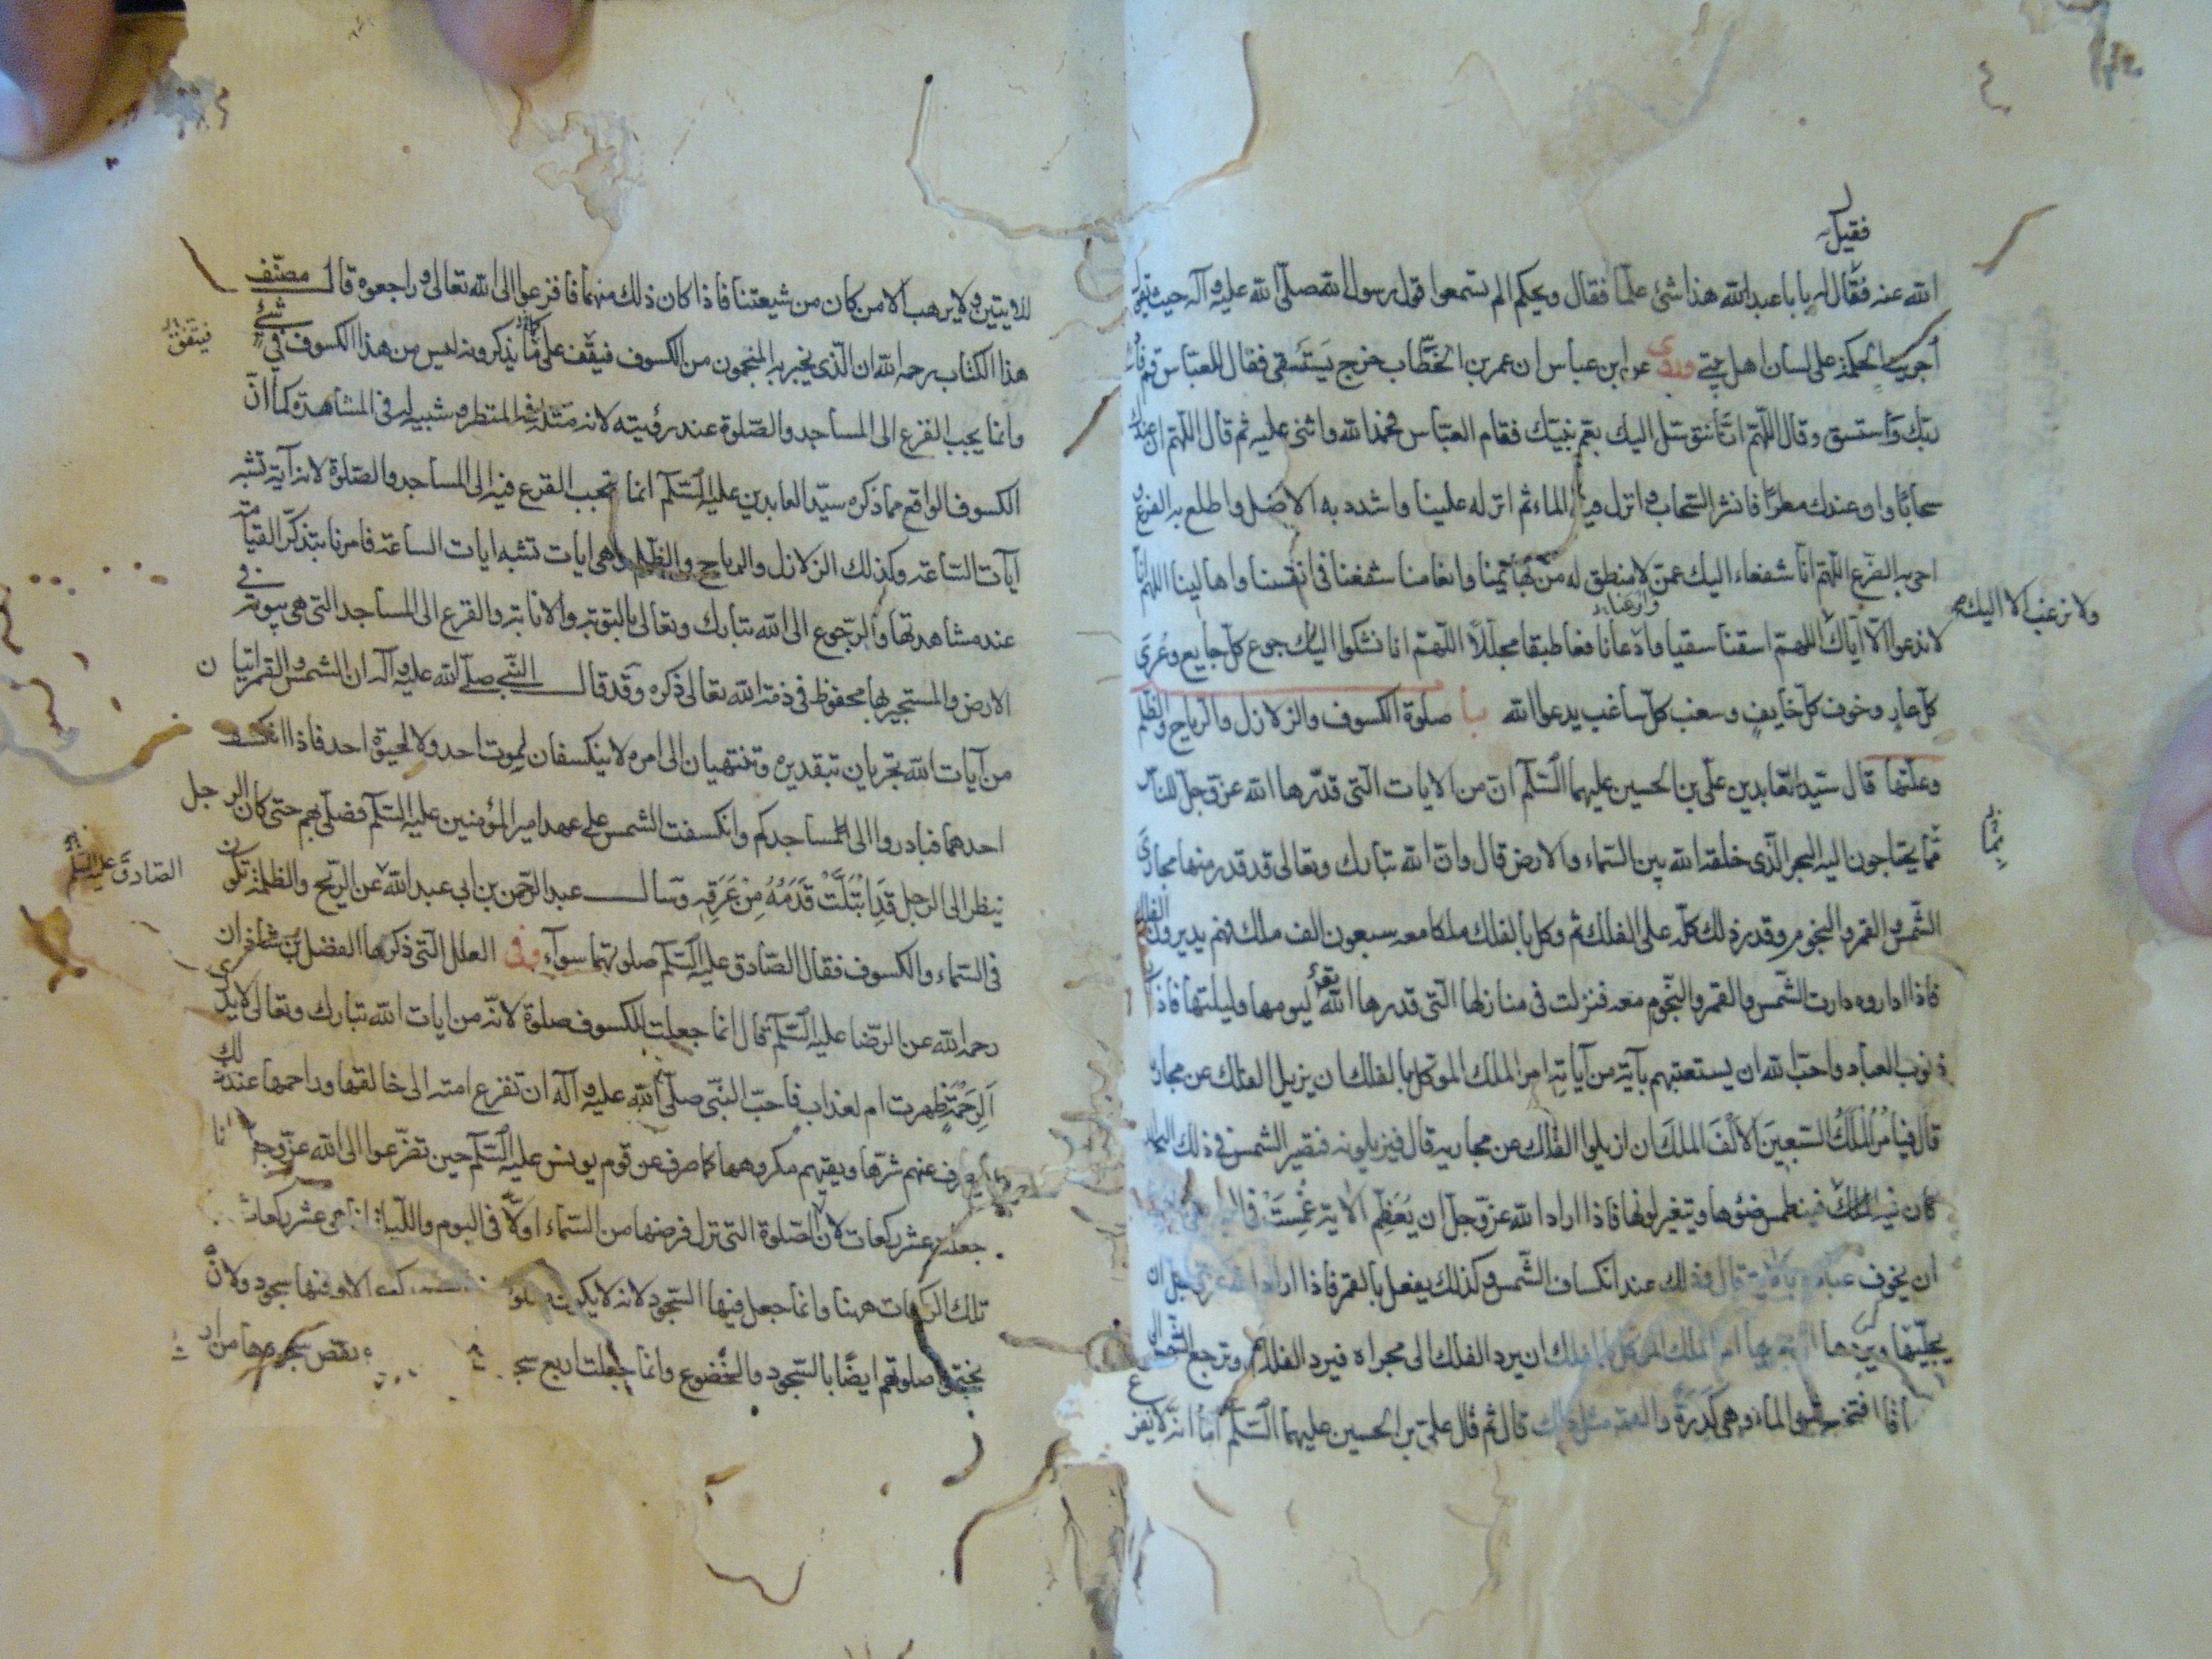 فقيل له
الله عنه فقال له يا با عبدالله هذا شئ علمنا فقال ويحكم الم تسمعوا قول رسول الله صلى الله عليه وآله حيث يقول
اجريت الحكمة على لسان اهل بيتي وروى عن ابن عباس ان عمر بن الخطاب خرج يستسقى فقال للعباس قم فادع
ربك واستسق وقال اللهم انا نتوسل اليك بعم نبيك فقام العباس فحمد الله واثنى عليه ثم قال اللهم ان عندك
سحابا وان عندك مطرا فانشر السحاب وانزل فيه الماء ثم انزله علينا واشدد به الاصل واطلع به الفرع
احي به الضرع اللهم انا شفعاء اليك عمن لا منطق له من بهائمنا وانعامنا شفعنا في انفسنا واهالينا اللهم انا
ولا نرغب الا اليك
لا ندعوا الا اياك اللهم اسقنا سقيا وادعا نافعا طبقا مجللا اللهم انا نشكوا اليك جوع كل جايع وعرى
كل عار وخوف كل خايف وسغب كل ساغب يدعوا الله باب صلوة الكسوف والزلازل والرياح والظلم
وعلتها قال سيد العابدين على بن الحسين عليهما السلام ان من الايات التى قدرها الله عز وجل للناس
مما يحتاجون اليه البحر الذى خلقه الله بين السماء والارض قال وان الله تبارك وتعالى قد قدر منها مجارى
الشمس والقمر والنجوم وقدر ذلك كله على الفلك ثم وكل بالفلك ملكا معه سبعون الف ملك فهم يديرون الفلك
فاذا اداروه دارت الشمس والقمر والنجوم معه فنزلت في منازلها التى قدرها الله ليومها وليلتها فاذا
ذنوب العباد واحب الله ان يستعتبهم بآية من آياته امر الملك الموكل بالفلك ان يزيل الفلك عن مجارى
قال فيامر الملك السبعين الالف الملك ان ازيلوا الفلك عن مجاريه قال فيزيلونه فتصير الشمس في ذلك البحر
كان فيه الفلك فينطمس ضوؤها ويتغير لونها فاذا اراد الله عز وجل ان يعظم الاية غمست في
ان يخوف عباده بالاية قال فذلك عند انكساف الشمس وكذلك يفعل بالقمر فاذا اراد الله عز وجل ان
يجليها ويردها الى مجريها امر الملك الموكل بالفلك ان يرد الفلك الى مجراه فيرد الفلك وترجع الشمس الى
قال فتخرج من الماء وهى كدرة والقمر مثل ذلك قال ثم قال على بن الحسين عليهما السلام اما انه لا يفزع
للايتين ولا يرهب الا من كان من شيعتنا فاذا كان ذلك منهما فافزعوا الى الله تعالى وراجعوه قال مصنف
هذا الكتاب رحمه الله ان الذى يخبر به المنجمون من الكسوف فيقف على ما يذكرونه ليس من هذا الكسوف في شئ
وانما يجب الفزع الى المساجد والصلوة عند رؤيته لانه مثله في المنظر وشبيه له في المشاهدة كما ان
الكسوف الواقع مما ذكره سيد العابدين عليه السلام انما تجب الفزع فيه الى المساجد والصلوة لانه آية تشبه
آيات الساعة وكذلك الزلازل والرياح والظلم وهى ايات تشبه ايات الساعة فامرنا بتذكر القيامة
عند مشاهدتها والرجوع الى الله تبارك وتعالى بالتوبة والانابة والفزع الى المساجد التى هى بيوته في
الارض والمستجير بها محفوظ في ذمة الله تعالى ذكره وقد قال النبي صلى الله عليه وآله ان الشمس والقمر ايتان
من آيات الله تجريان بتقديره وتنتهيان الى امره لا ينكسفان لموت احد ولا لحيوة احد فاذا انكسف
احدهما فبادروا الى مساجدكم وانكسفت الشمس على عهد امير المؤمنين عليه السلام فصلى بهم حتى كان الرجل
ينظر الى الرجل قد ابتلت قدمه من عرقه وسال عبد الرحمن بن ابي عبد الله عن الريح والظلمة تكون
الصادق عليه السلم
في السماء والكسوف فقال الصادق عليه السلام صلوتهما سواء وفى العلل التى ذكرها الفضل بن شاذان
رحمه الله عن الرضا عليه السلام قال انما جعلت للكسوف صلوة لانه من ايات الله تبارك وتعالى لا يدرى
الرحمة ظهرت ام لعذاب فاحب النبى صلى الله عليه وآله ان تفزع امته الى خالقها وراحمها عند ذلك
ليصرف عنهم شرها ويقيهم مكروهها كما صرف عن قوم يونس عليه السلام حين تضرعوا الى الله عز وجل
جعلت عشر ركعات لان الصلوة التى نزل فرضها من السماء اولا في اليوم والليلة انما هى عشر ركعات
تلك الركعات ههنا وانما جعل فيها السجود لانه لا يكون صلوة الا وفيها سجود ولان
يختموا صلوتهم ايضا بالسجود والخضوع وانما جعلت اربع سجدات نقص سجودها من